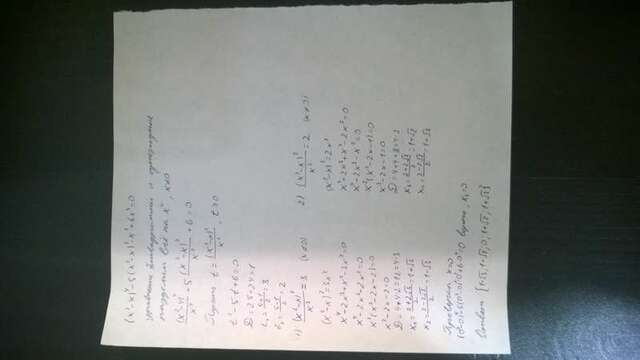 (x²-x)⁴-5(x²-x)²·x²+6x⁴=0
уравнение биквадратное и однородное
разделим всё на x⁴, x≠0
(x²-x)⁴/x⁴ - 5(x²-x)²/x² + 6 = 0
Пусть t = (x²-x)²/x², t≥0
t²-5t+6=0
D=25-24=1
t₁=(5+1)/2=3
t₂=(5-1)/2=2
1) (x²-x)²/x² = 3 (x≠0)
(x²-x)²=3x²
x⁴-2x³+x²-3x²=0
x⁴-2x³-2x²=0
x²(x²-2x-2)=0
x²-2x-2=0
D=4+4·2=12=4·3
x₁=(2+2√3)/2=1+√3
x₂=(2-2√3)/2=1-√3
2) (x²-x)²/x² = 2 (x≠0)
(x²-x)²=2x²
x⁴-2x³+x²-2x²=0
x⁴-2x³-x²=0
x²(x²-2x-1)=0
x²-2x-1=0
D=4+4=8=4·2
x₃=(2+2√2)/2=1+√2
x₄=(2-2√2)/2=1-√2
Проверка x=0
верно, x₅=0
Ответ